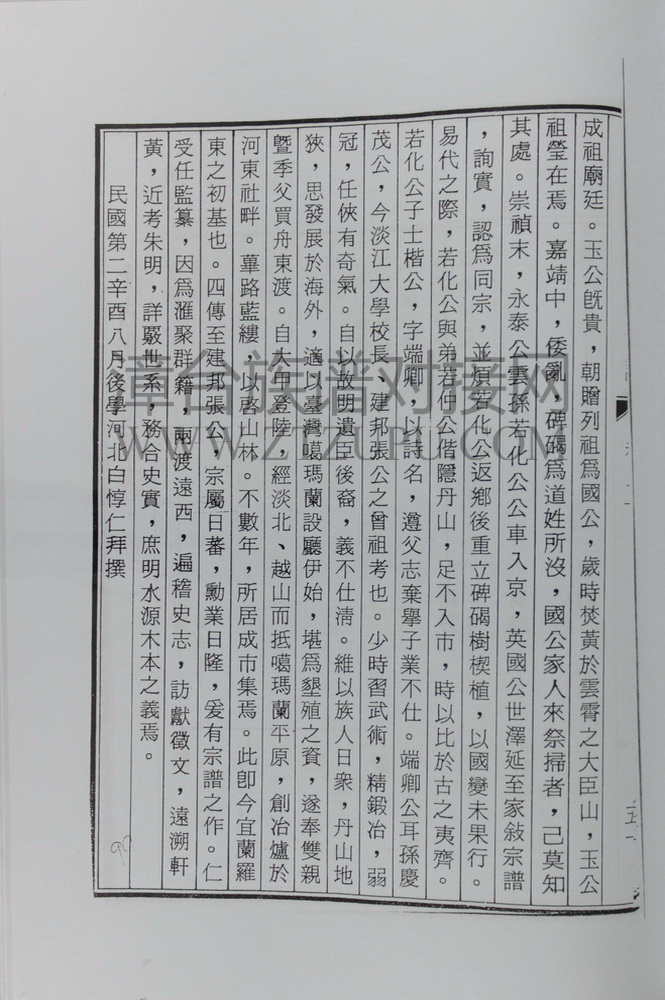 成祖廟廷。玉公旣貴，朝贈列祖爲國公，歲時焚黃於雲霄之大臣山，玉公
祖瑩在焉。嘉靖中，倭亂，碑碣爲道姓所沒，國公家人來祭掃者，己莫知
其處。崇禎末，永泰公雲孫若化公公車入京，英國公世澤延至家敍宗譜
，詢實，認爲同宗，並煩若化公返鄉後重立碑碣樹楔植，以國變未果行。
易代之際，若化公與弟若仲公偕隱丹山，足不入市，時以比於古之夷齊。
若化公子士楷公，字端卿，以詩名，遵父志棄擧子業不仕。端卿公耳孫慶
茂公，今淡江大學校長、建邦張公之曾祖考也。少時習武術，精鍛冶，弱
冠，任俠有奇氣。自以故明遺臣後裔，義不仕淸。維以族人日衆，丹山地
狹，思發展於海外，適以臺灣噶瑪蘭設廳伊始，堪爲墾殖之資，遂奉雙親
暨季父買舟東渡。自大甲登陸，經淡北、越山而抵噶瑪蘭平原，創冶爐於
河東社畔。蓽路藍縷，以啓山林。不數年，所居成市集焉。此卽今宜蘭羅
東之初基也。四傳至建邦張公，宗屬日蕃，勳業日隆，爰有宗譜之作。仁
受任監纂，因爲滙聚群籍，兩渡遠西，遍稽史志，訪獻徵文，遠溯軒
黃，近考朱明，詳覈世系，務合史實，庶明水源木本之義焉。
民國第二辛酉八月後學河北白惇仁拜撰
90
章台族谱对接网
WWW.ZTZUPU.COM